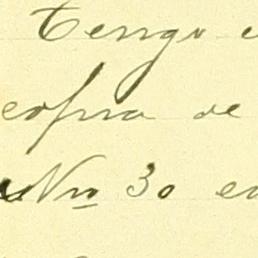 Tengo
copia de
Nro 30